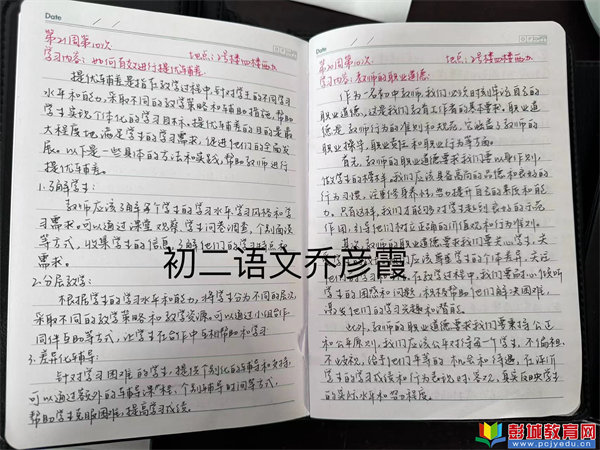 Date
第21周第10次
地点:2号楼四楼西办
学习内容:如何有效进行提优补差
提优补差是指在教学过程中,针对学生的不同学习
水平和能力,采取不同的教学策略和辅助措施,帮助
学生实现个体化的学习目标。提优补差的目的是最
大程度地满足学生的学习需求,促进他们的全面发
展。以下是一些具体的方法和实践,帮助教师进行
提优补差
1.了解学生:
教师应该了解每个学生的学习水平、学习风格和学
习需求。可以通过课堂观察、学习问卷调查、个别面谈
等方式,收集学生的信息,了解他们的学习特点和
需求。
2.分层教学:
根据学生的学习水平和能力,将学生分为不同的层次
采取不同的教学策略和教学资源。可以通过小组合作
同伴互助等方式,让学生在合作中互相帮助和学习
3.差异化辅导:
针对学习困难的学生,提供个别化的辅导和支持,
可以通过额外的辅导课程、个别辅导时间等方式,
帮助学生克服困难,提高学习成绩。
Date
第20周第10次
地点:2号楼四楼西办
学习内容:教师的职业道德:
作为一名初中教师,我们必须时刻牢记自己的
职业道德,这是我们教育工作者的基本要求。职业道
德是教师行为的准则和规范,它涵盖了教师的
职业操守、职业责任和职业行为等方面。
首先,教师的职业道德要求我们要以身作则,
做学生的榜样,我们应该具备高尚的品德和良好的
行为习惯,注重修身养性,努力提升自己的素质和能
力。只有这样,我们才能够对学生起到良好的示范
作用,引导他们树立正确的价值观和行为准则。
其次,教师的职业道德要求我们要关心学生,关
学生,我们应该尊重学生的个体差异,关注
和。在教学过程中,我们要耐心倾听
学生的困惑和问题,积极帮助他们解决困难,
激发他们的学习兴趣和潜能。
此外,教师的职业道德要求我们要秉持公正
和公平原则,我们应该公平对待每一个学生,不偏袒、
不歧视,给予他们平等的机会和待遇,在评价
学生的学习成绩和行为表现时,客观、真实反映学生
的实际水平和努力程度。
初二语文乔彦霞
彭城教育网
www.pcjyedu.cn